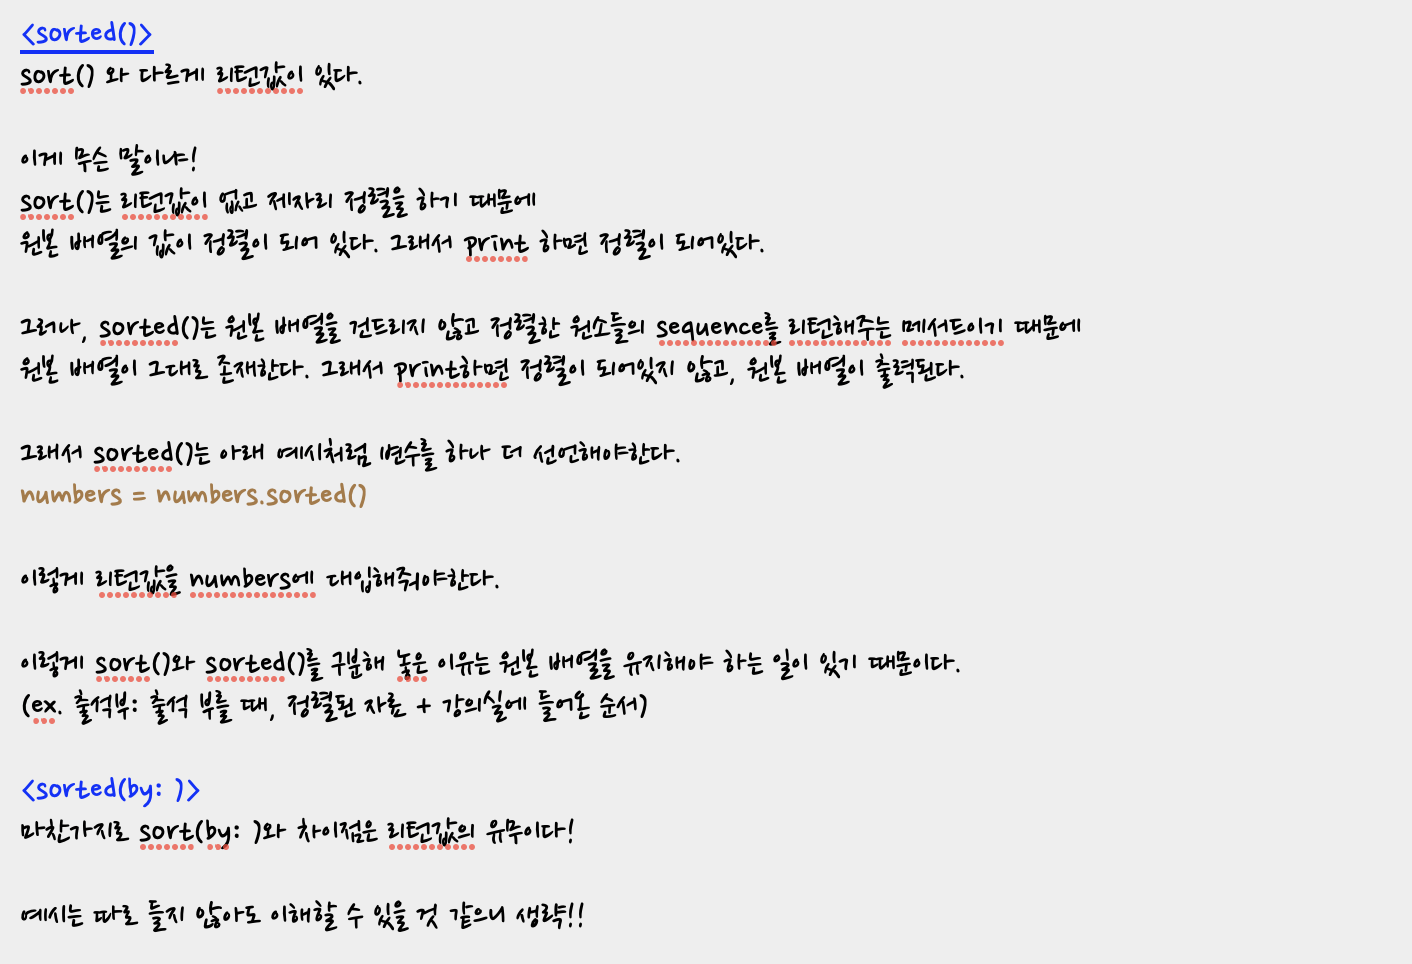 <sorted()>
sort() 와 다르게 리턴값이 있다.
이게 무슨 말이냐!
sort()는 리턴값이 없고 제자리 정렬을 하기 때문에
원본 배열의 값이 정렬이 되어 있다. 그래서 print 하면 정렬이 되어있다.
그러나, sorted()는 원본 배열을 건드리지 않고 정렬한 원소들의 sequence를 리턴해주는 메서드이기 때문에
원본 배열이 그대로 존재한다. 그래서 print하면 정렬이 되어있지 않고, 원본 배열이 출력된다.
그래서 sorted()는 아래 예시처럼 변수를 하나 더 선언해야한다.
numbers = numbers.sorted()
이렇게 리턴값을 numbers에 대입해줘야한다.
이렇게 sort()와 sorted()를 구분해 놓은 이유는 원본 배열을 유지해야 하는 일이 있기 때문이다.
(ex. 출석부: 출석 부를 때, 정렬된 자료 + 강의실에 들어온 순서)
<sorted(by: )>
마찬가지로 sort(by: )와 차이점은 리턴값의 유무이다!
예시는 따로 들지 않아도 이해할 수 있을 것 같으니 생략!!